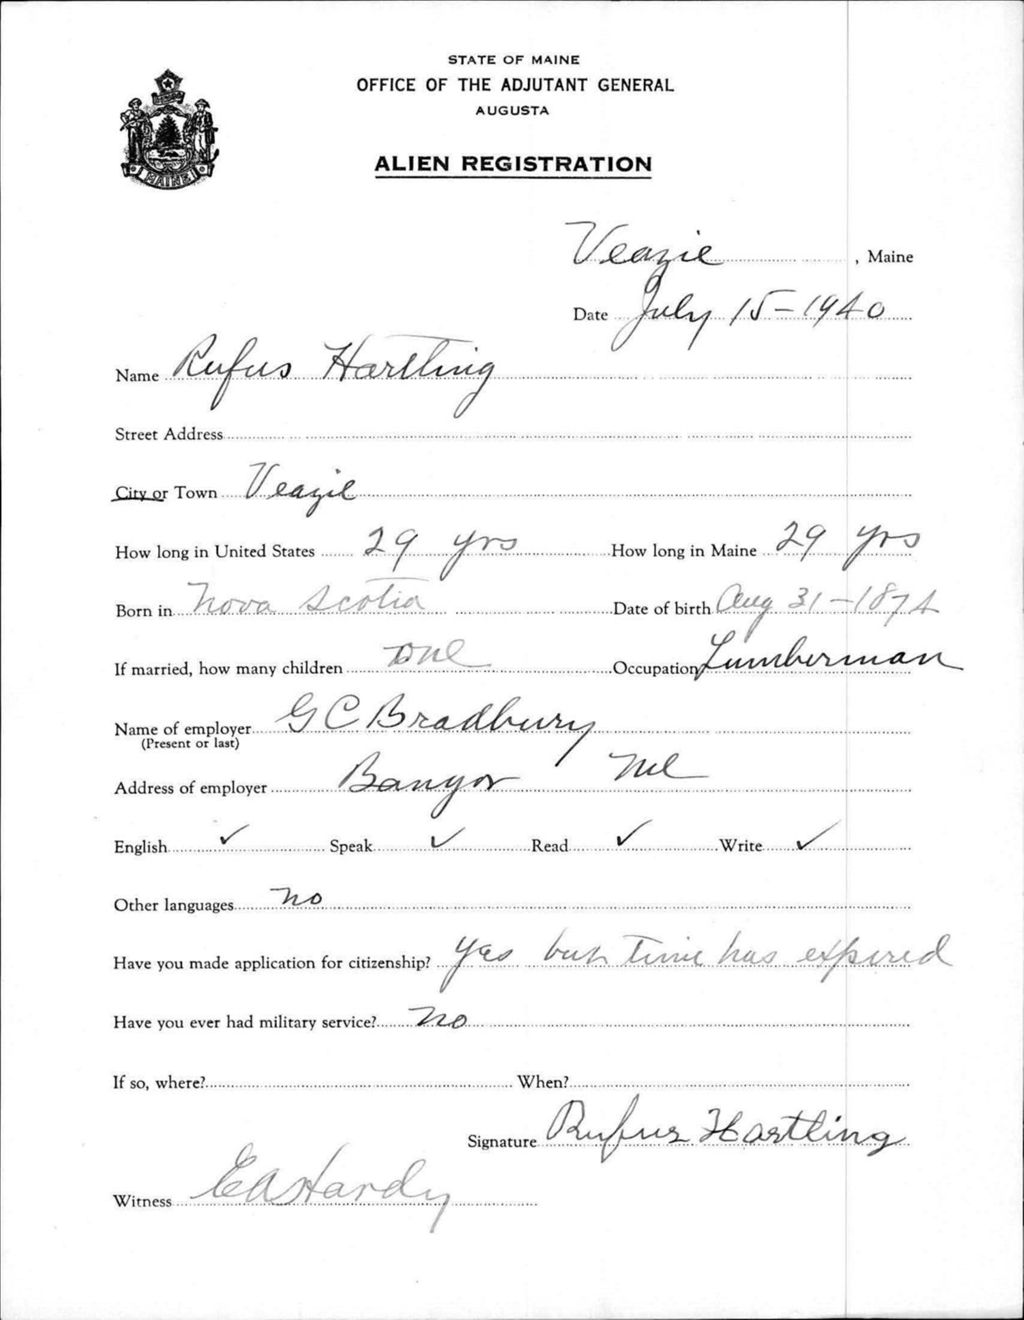 STATE OF MAINE
OFFICE OF THE ADJUTANT GENERAL
AUGUSTA
ALIEN REGISTRATION
MAINE
Veazie, Maine
Date July 15-1940
Name Rufus Hartling
Street Address
City or Town Veazie
How long in United States 29 yrs How long in Maine 29 yrs
Born in Nova Scotia Date of birth Aug 31-1874
If married, how many children one Occupation Lumberman
Name of employer G C Bradbury
(Present or last)
Address of employer Bangor Me
English ✓ Speak ✓ Read ✓ Write ✓
Other languages no
Have you made application for citizenship? Yes but time has expired
Have you ever had military service? No
If so, where? When?
Signature Rufus Hartling
Witness E A Hardy